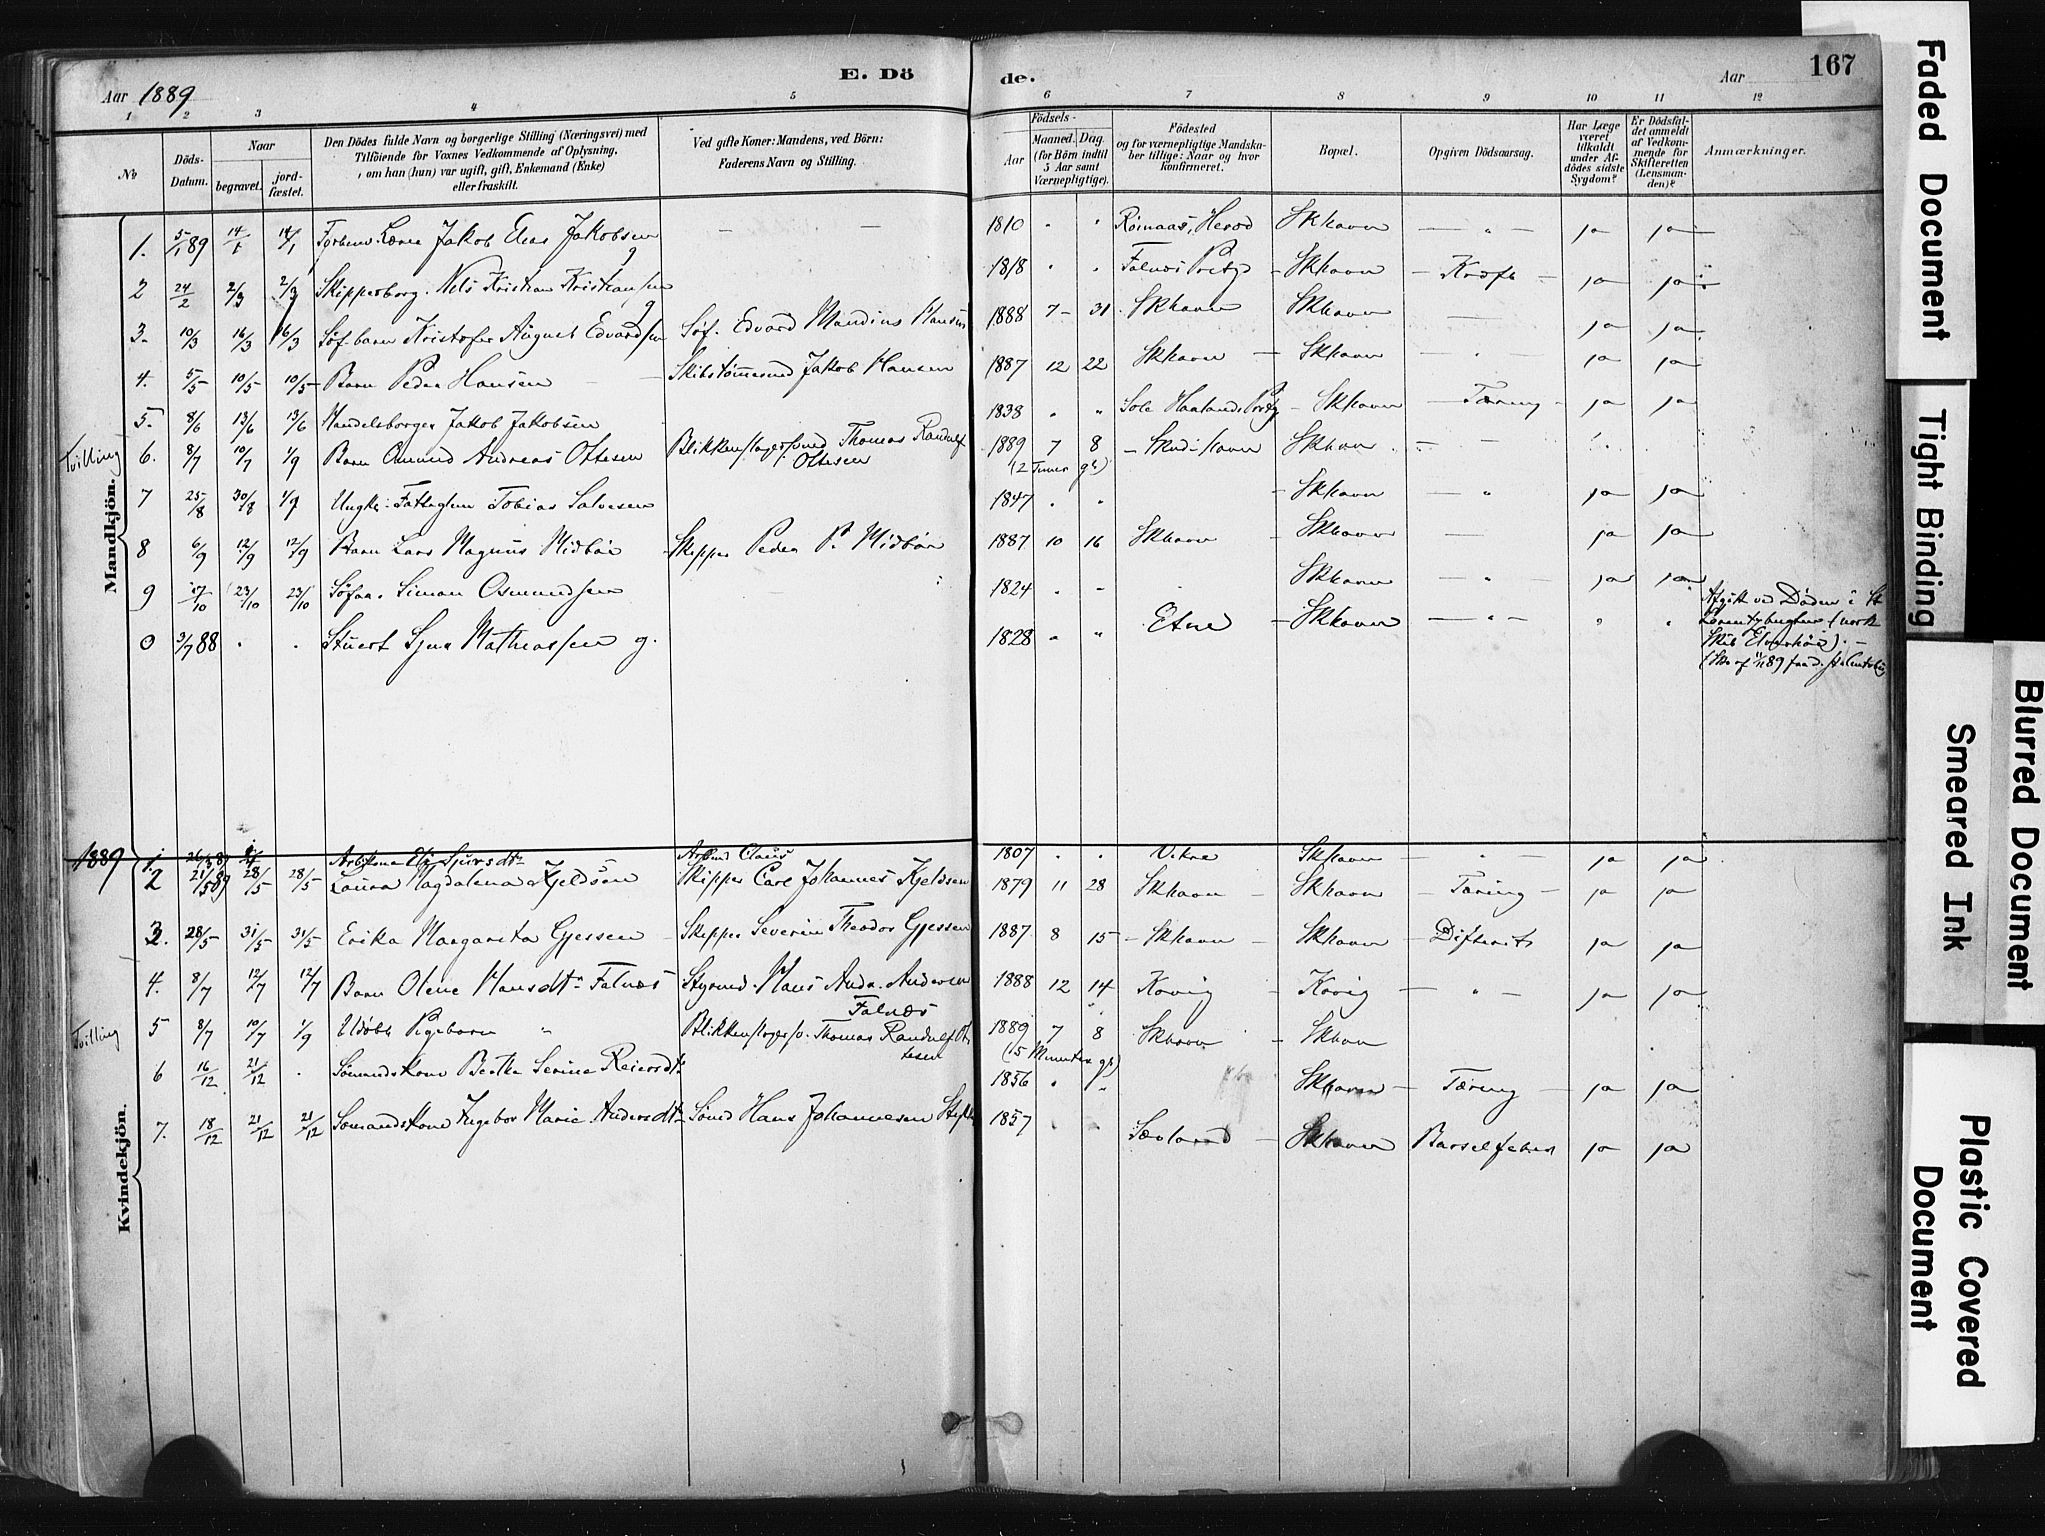 Aar 1889
E. Dö
de.
Aar
167
1 2 3 4 5 6 7 8 9 10 11 12
№
Döds-
Datum.
Naar
begravet.
jord-
fæstet.
Den Dödes fulde Navn og borgerlige Stilling (Næringsvei) med
Tilföiende for Voxnes Vedkommende af Oplysning,
om han (hun) var ugift, gift, Enkemand (Enke)
eller fraskilt.
Ved gifte Koner: Mandens, ved Börn:
Faderens Navn og Stilling.
Födsels-
Aar
Maaned. Dag.
(for Börn indtil
5 Aar samt
Værnepligtige).
Födested
og for værnepligtige Mandska-
ber tillige: Naar og hvor
konfirmeret.
Bopæl.
Opgiven Dödsaarsag.
Har Læge
været
tilkaldt
under Af-
dödes sidste
Sygdom?
Er Dödsfal-
det anmeldt
af Vedkom-
mende for
Skifteretten
(Lensman-
den)?
Anmærkninger.
Mandkjön.
1. 5/1 89 14/1 14/1 Jakob Elias Jakobsen g — — 1810 " " Skhavn — " — ja ja
2 24/2 2/3 2/3 Skipperborg. Nels Kristian Kristiansen g 1818 " " Falnæs Prstgd — Skhavn — Kræft — ja ja
3. 10/3 16/3 16/3 Söf. barn Kristofer August Edvardsen Söf. Edvard Mandius Hansen 1888 7 — 31 Skhavn Skhavn — ja ja
4. 5/5 10/5 10/5 Barn Peder Hansen — Skibstømmermd Jakob Hansen 1887 12 22 Skhavn — Skhavn — " ja ja
5. 8/6 13/6 13/6 Handelsborger Jakob Jakobsen 1838 " " Sole Haalands Prstg — Skhavn — Tæring — ja ja
Tvilling 6. 8/7 10/7 1/9 Barn Omund Andreas Ottesen Blikkenslagersvend Thomas Randulf
Ottesen 1889 7 8 — Skudeshavn Skhavn
(2 Timer gl.)
7 25/8 30/8 1/9 Ungk: Fattiglem Tobias Salvesen 1847 " " — Skhavn — " ja ja
8 6/9 12/9 12/9 Barn Lars Magnus Midbøe Skipper Peder P. Midbøe 1887 10 16 Skhavn — Skhavn — — ja ja
9 17/10 23/10 23/10 Söfaa. Simon Osmundsen 1824 " " Skhavn — " — ja ja
0 3/7 88 " " Stuert Sjur Mathiassen g. 1828 " " Etne — Skhavn — " — " "
Afgik ved Døden i St
Lorentzbugten (norsk
Skib Elverhøi). —
1889
Kvindekjön.
1. 26/3 89 Eli Sjursdtr Arbmd Claus 1807 " " Vikre Skhavn — " — ja ja
2 21/5 89 28/5 28/5 Laura Magdalena Kjeldsen Skipper Carl Johannes Kjeldsen 1879 11 28 Skhavn — Skhavn — Tæring — ja ja
3. 28/5 31/5 31/5 Erika Margareta Gjessen — Skipper Severin Theodor Gjessen 1887 8 15 — Skhavn — Skhavn — Difterit ja ja
4. 8/7 12/7 12/7 Barn Olene Hansdtr Falnæs Styrmd. Hans Andr. Andersen
Falnæs 1888 12 14 Køvig — Køvig — " — ja ja
Tvilling 5 8/7 10/7 1/9 Udøbt Pigebarn " Blikkenslagersv. Thomas Randulf Ot-
tesen 1889 7 8 Skhavn — Skhavn
(15 Minutter gl.)
6 16/12 21/12 " Sømandskone Bertha Serine Reiersdtr 1856 " " Skhavn — Tæring — ja ja
7. 18/12 21/12 21/12 Sømandskone Ingebor Marie Andersdtr Sømd Hans Johannesen 1857 " " Sævland — Skhavn Barselfeber ja ja
Faded Document
Tight Binding
Blurred Document
Smeared Ink
Plastic Covered
Document